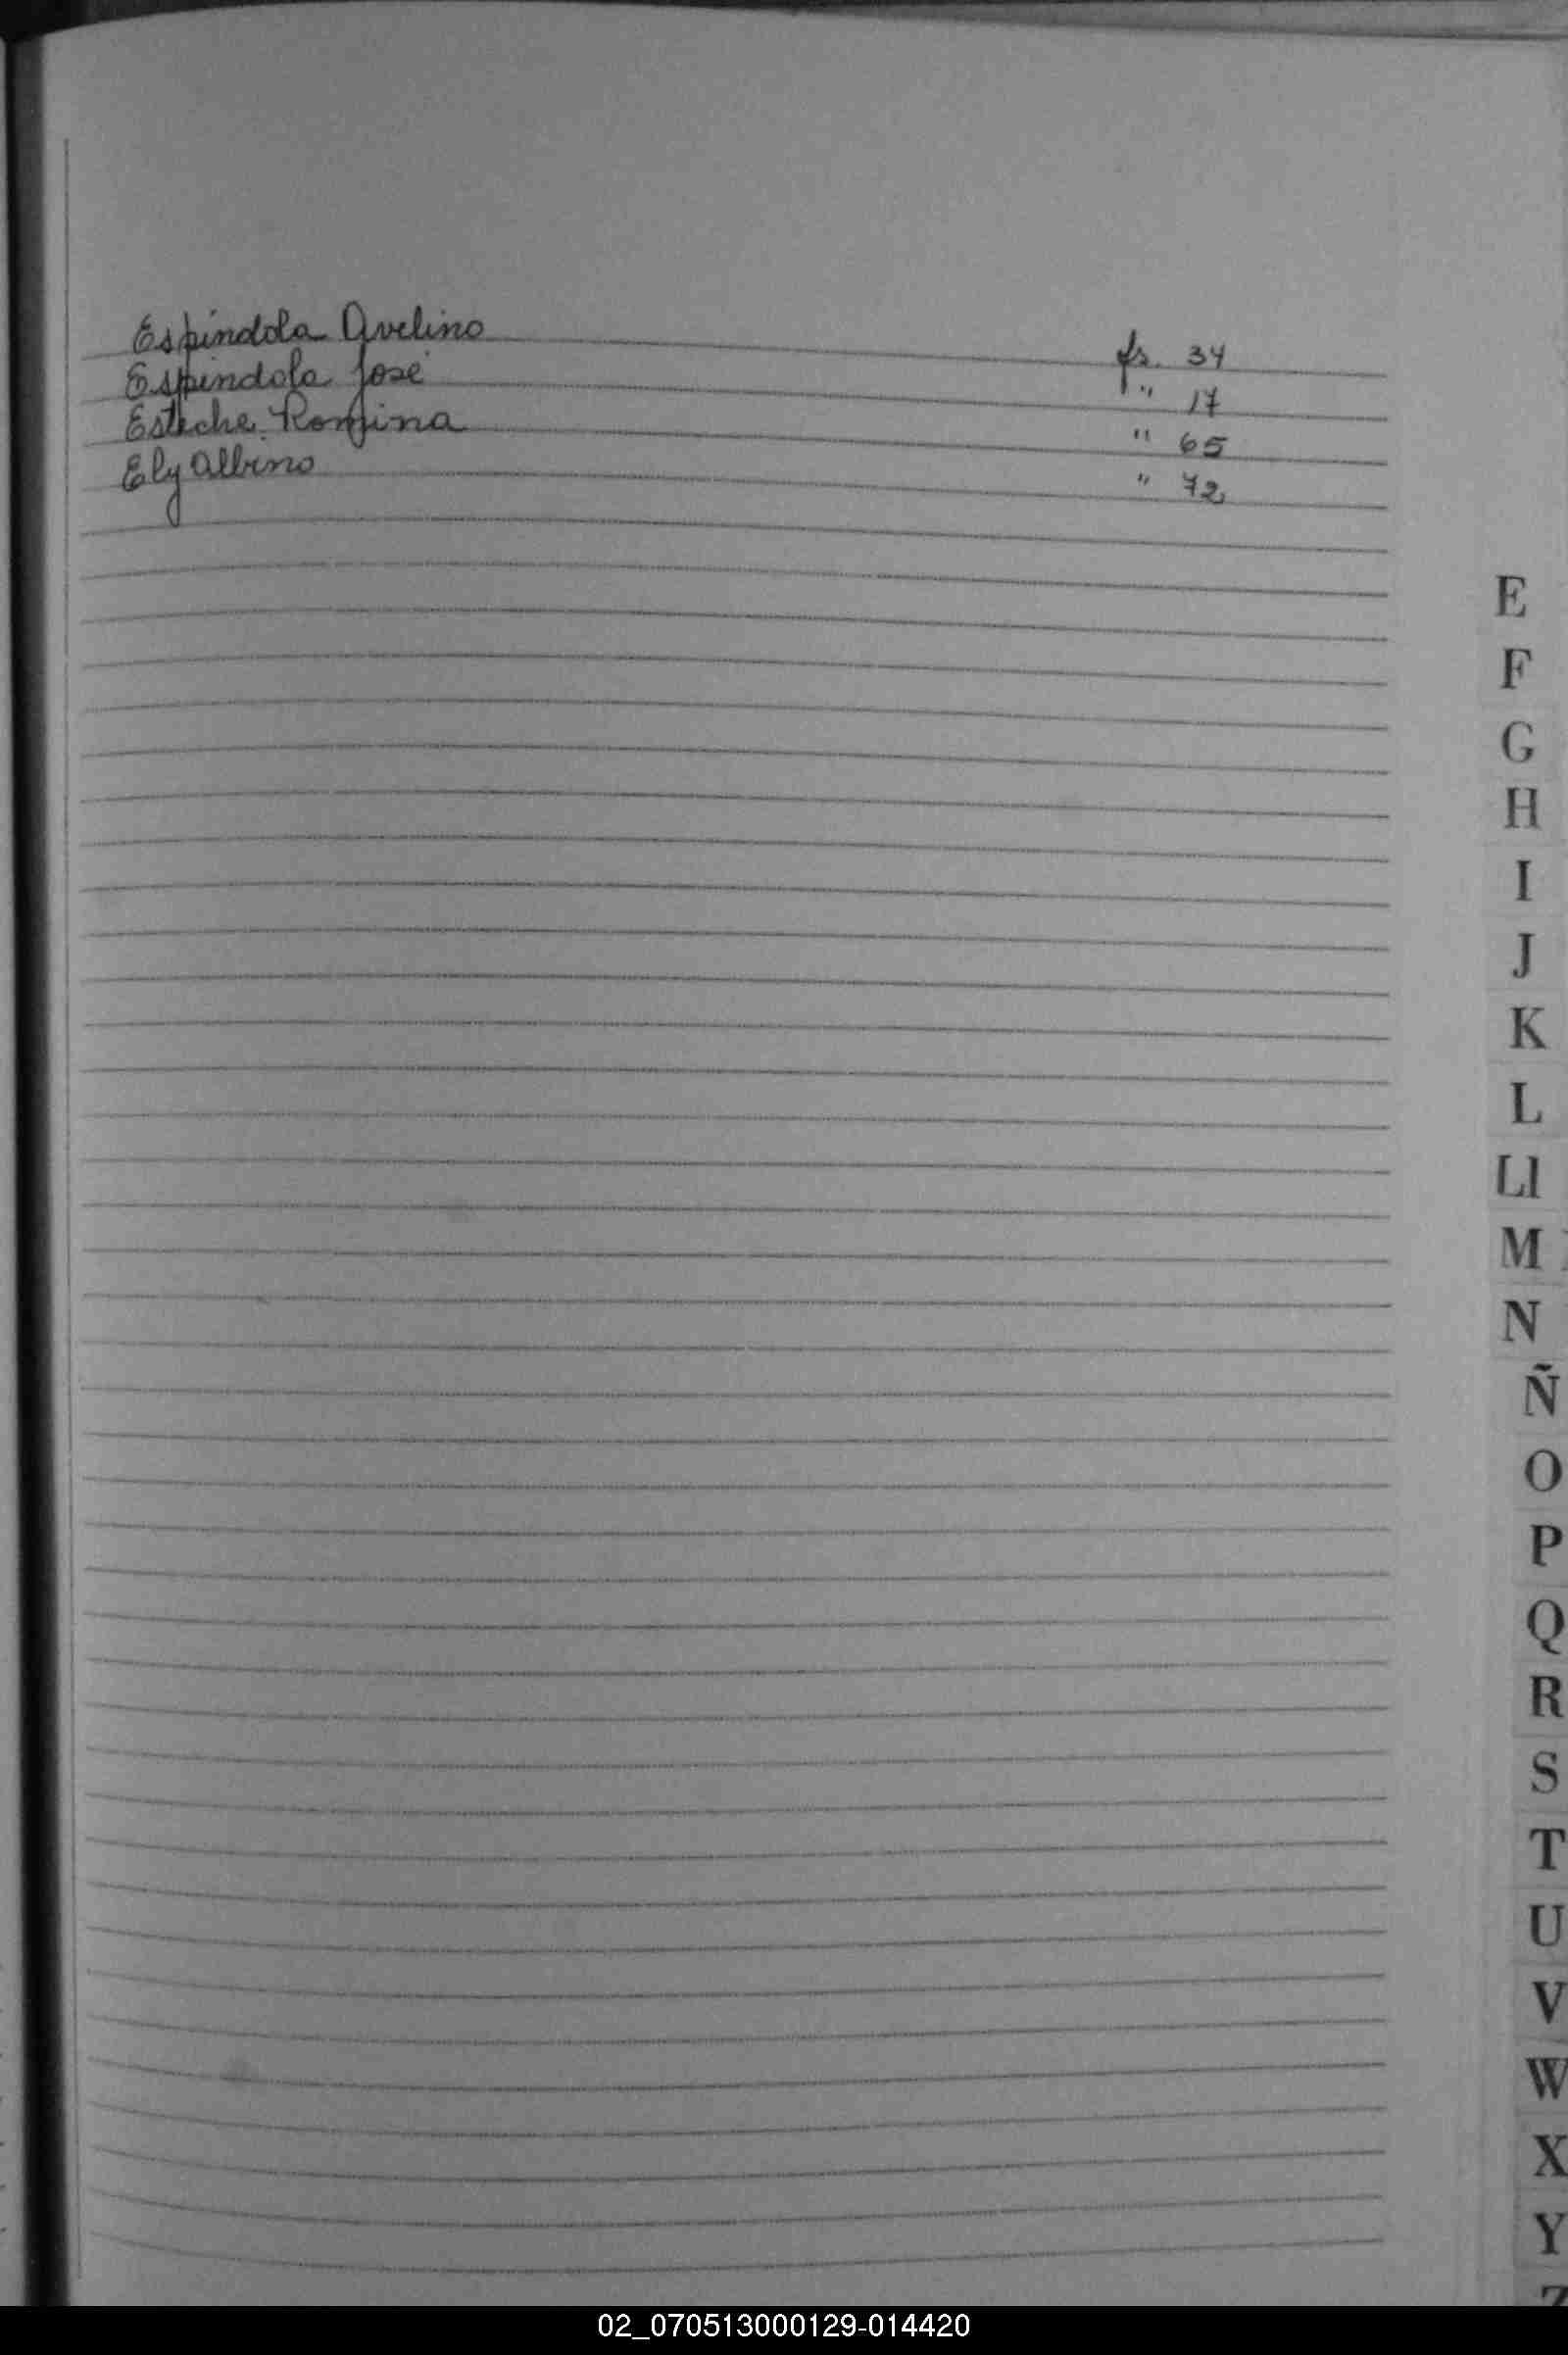 Espíndola Avelino fs. 34
Espíndola José " 17
Esteche Romina " 65
Ely Albino " 72
E
F
G
H
I
J
K
L
Ll
M
N
Ñ
O
P
Q
R
S
T
U
V
W
X
Y
Z
02_070513000129-014420